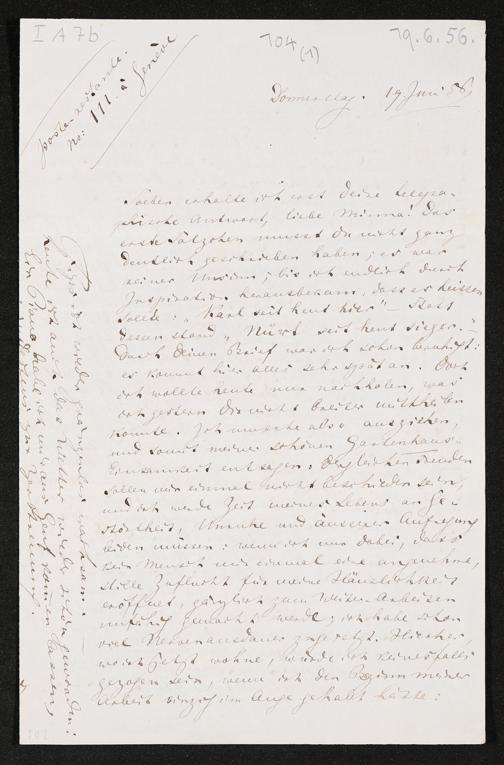 I A 7b
104
(1)
19.6.56.
poste restante.
No: 111. à Genève
Donnerstag. 19 Juni 56.
Soeben erhalte ich erst Deine telegra-
phische Antwort, liebe Minna! Das
erste Sätzchen musst Du nicht ganz
deutlich geschrieben haben; es war
reiner Unsinn; bis ich endlich durch
Inspiration herausbekam, dass es heissen
sollte: „Karl seit heut hier" – Statt
dessen stand „Nürt seit heut sieger. –
Durch Deinen Brief war ich schon beruhigt:
es kommt hier alles sehr spät an. Doch
ich wollte heute nur nachholen, was
ich gestern Dir nicht breiter mittheilen
konnte. Ich musste also ausziehen,
und somit meiner schönen Gartenhaus-
Einsamkeit entsagen. Dergleichen Freuden
sollen mir einmal nicht beschieden sein,
und ich werde Zeit meines Lebens an Ge-
störtheit, Unruhe und äusserer Aufregung
leiden müssen: wenn ich nur dabei, dass
kein Mensch mir einmal eine angenehme,
stille Zuflucht für meine Häuslichkeit
eröffnet, gänzlich zum Weiter-Arbeiten
unfähig gemacht werde; ich habe schon
viel Nervenausdauer zugesetzt. Hierher,
wo ich jetzt wohne, würde ich keinesfalls
gezogen sein, wenn ich den Beginn meiner
Arbeit einzig im Auge gehabt hätte:
wieder
heute ist auch das Wetter wieder schön geworden:
Ein Piano habe ich mir aus Genf kommen lassen,
zur Zerstreuung.